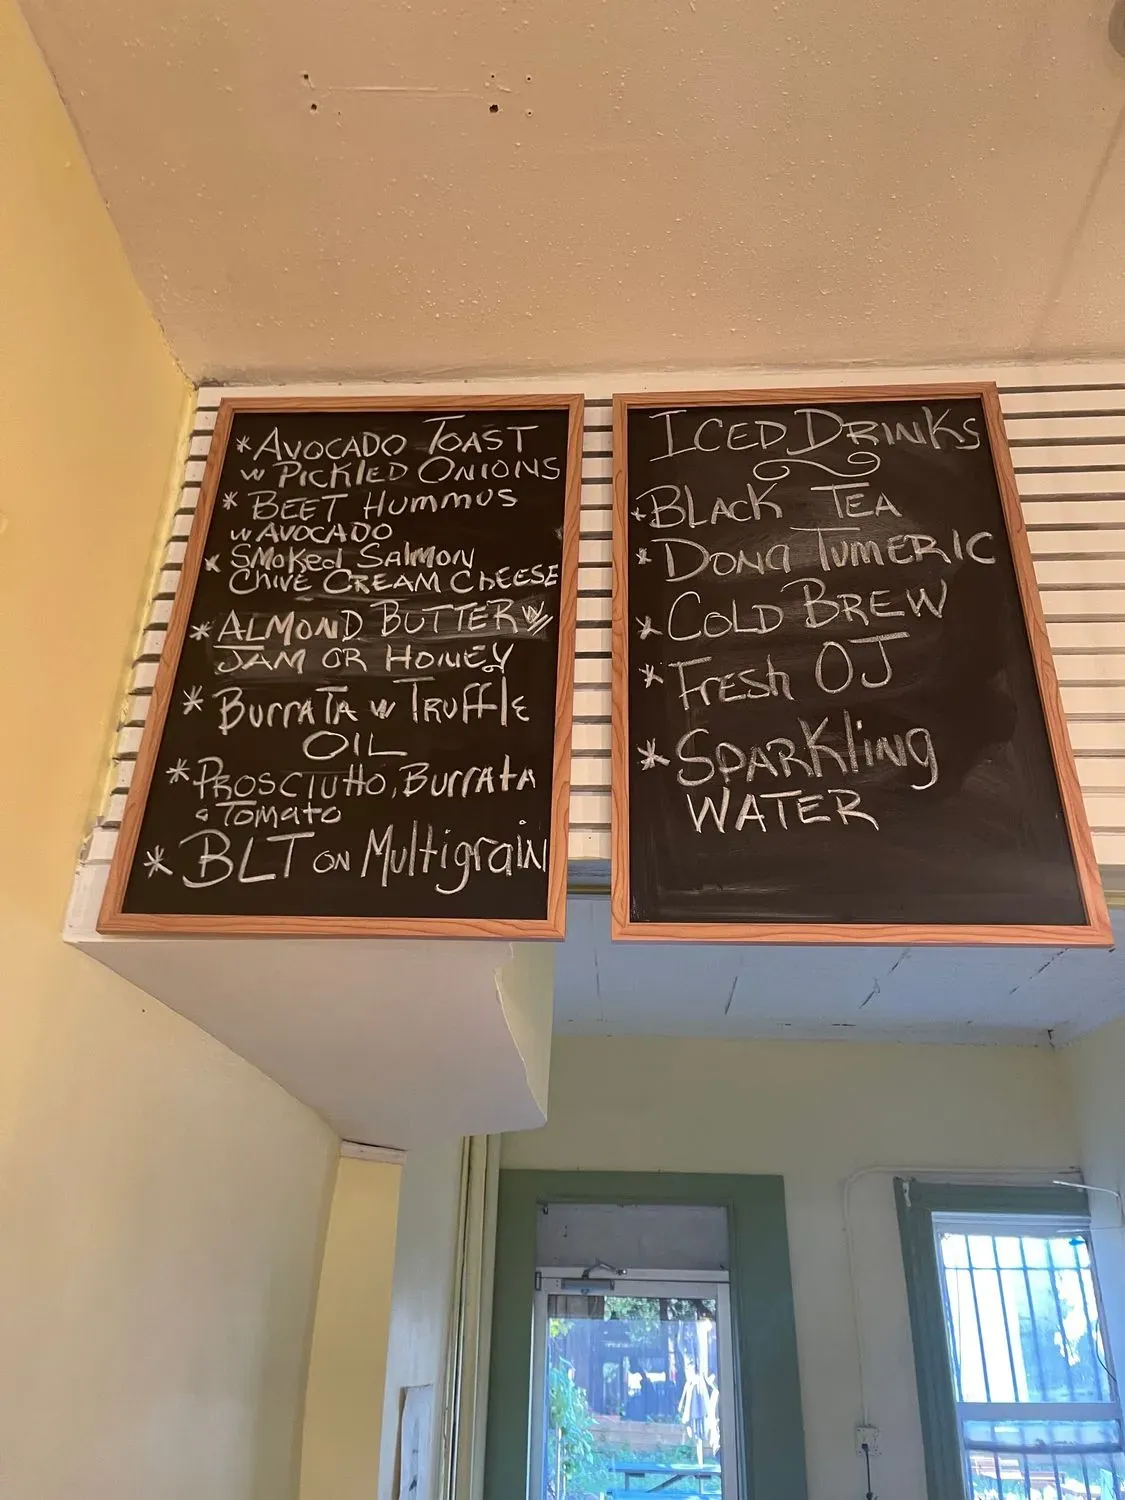 * AVOCADO TOAST
w PICKLED ONIONS
* BEET HUMMUS
w AVOCADO
* SMOKED SALMON
CHIVE CREAM CHEESE
* ALMOND BUTTER w/
JAM OR HONEY
* BURRATA w TRUFFLE
OIL
* PROSCIUTTO, BURRATA
& TOMATO
* BLT ON Multigrain
ICED DRINKS
* BLACK TEA
* DONA TUMERIC
* COLD BREW
* Fresh OJ
* SPARKling
WATER